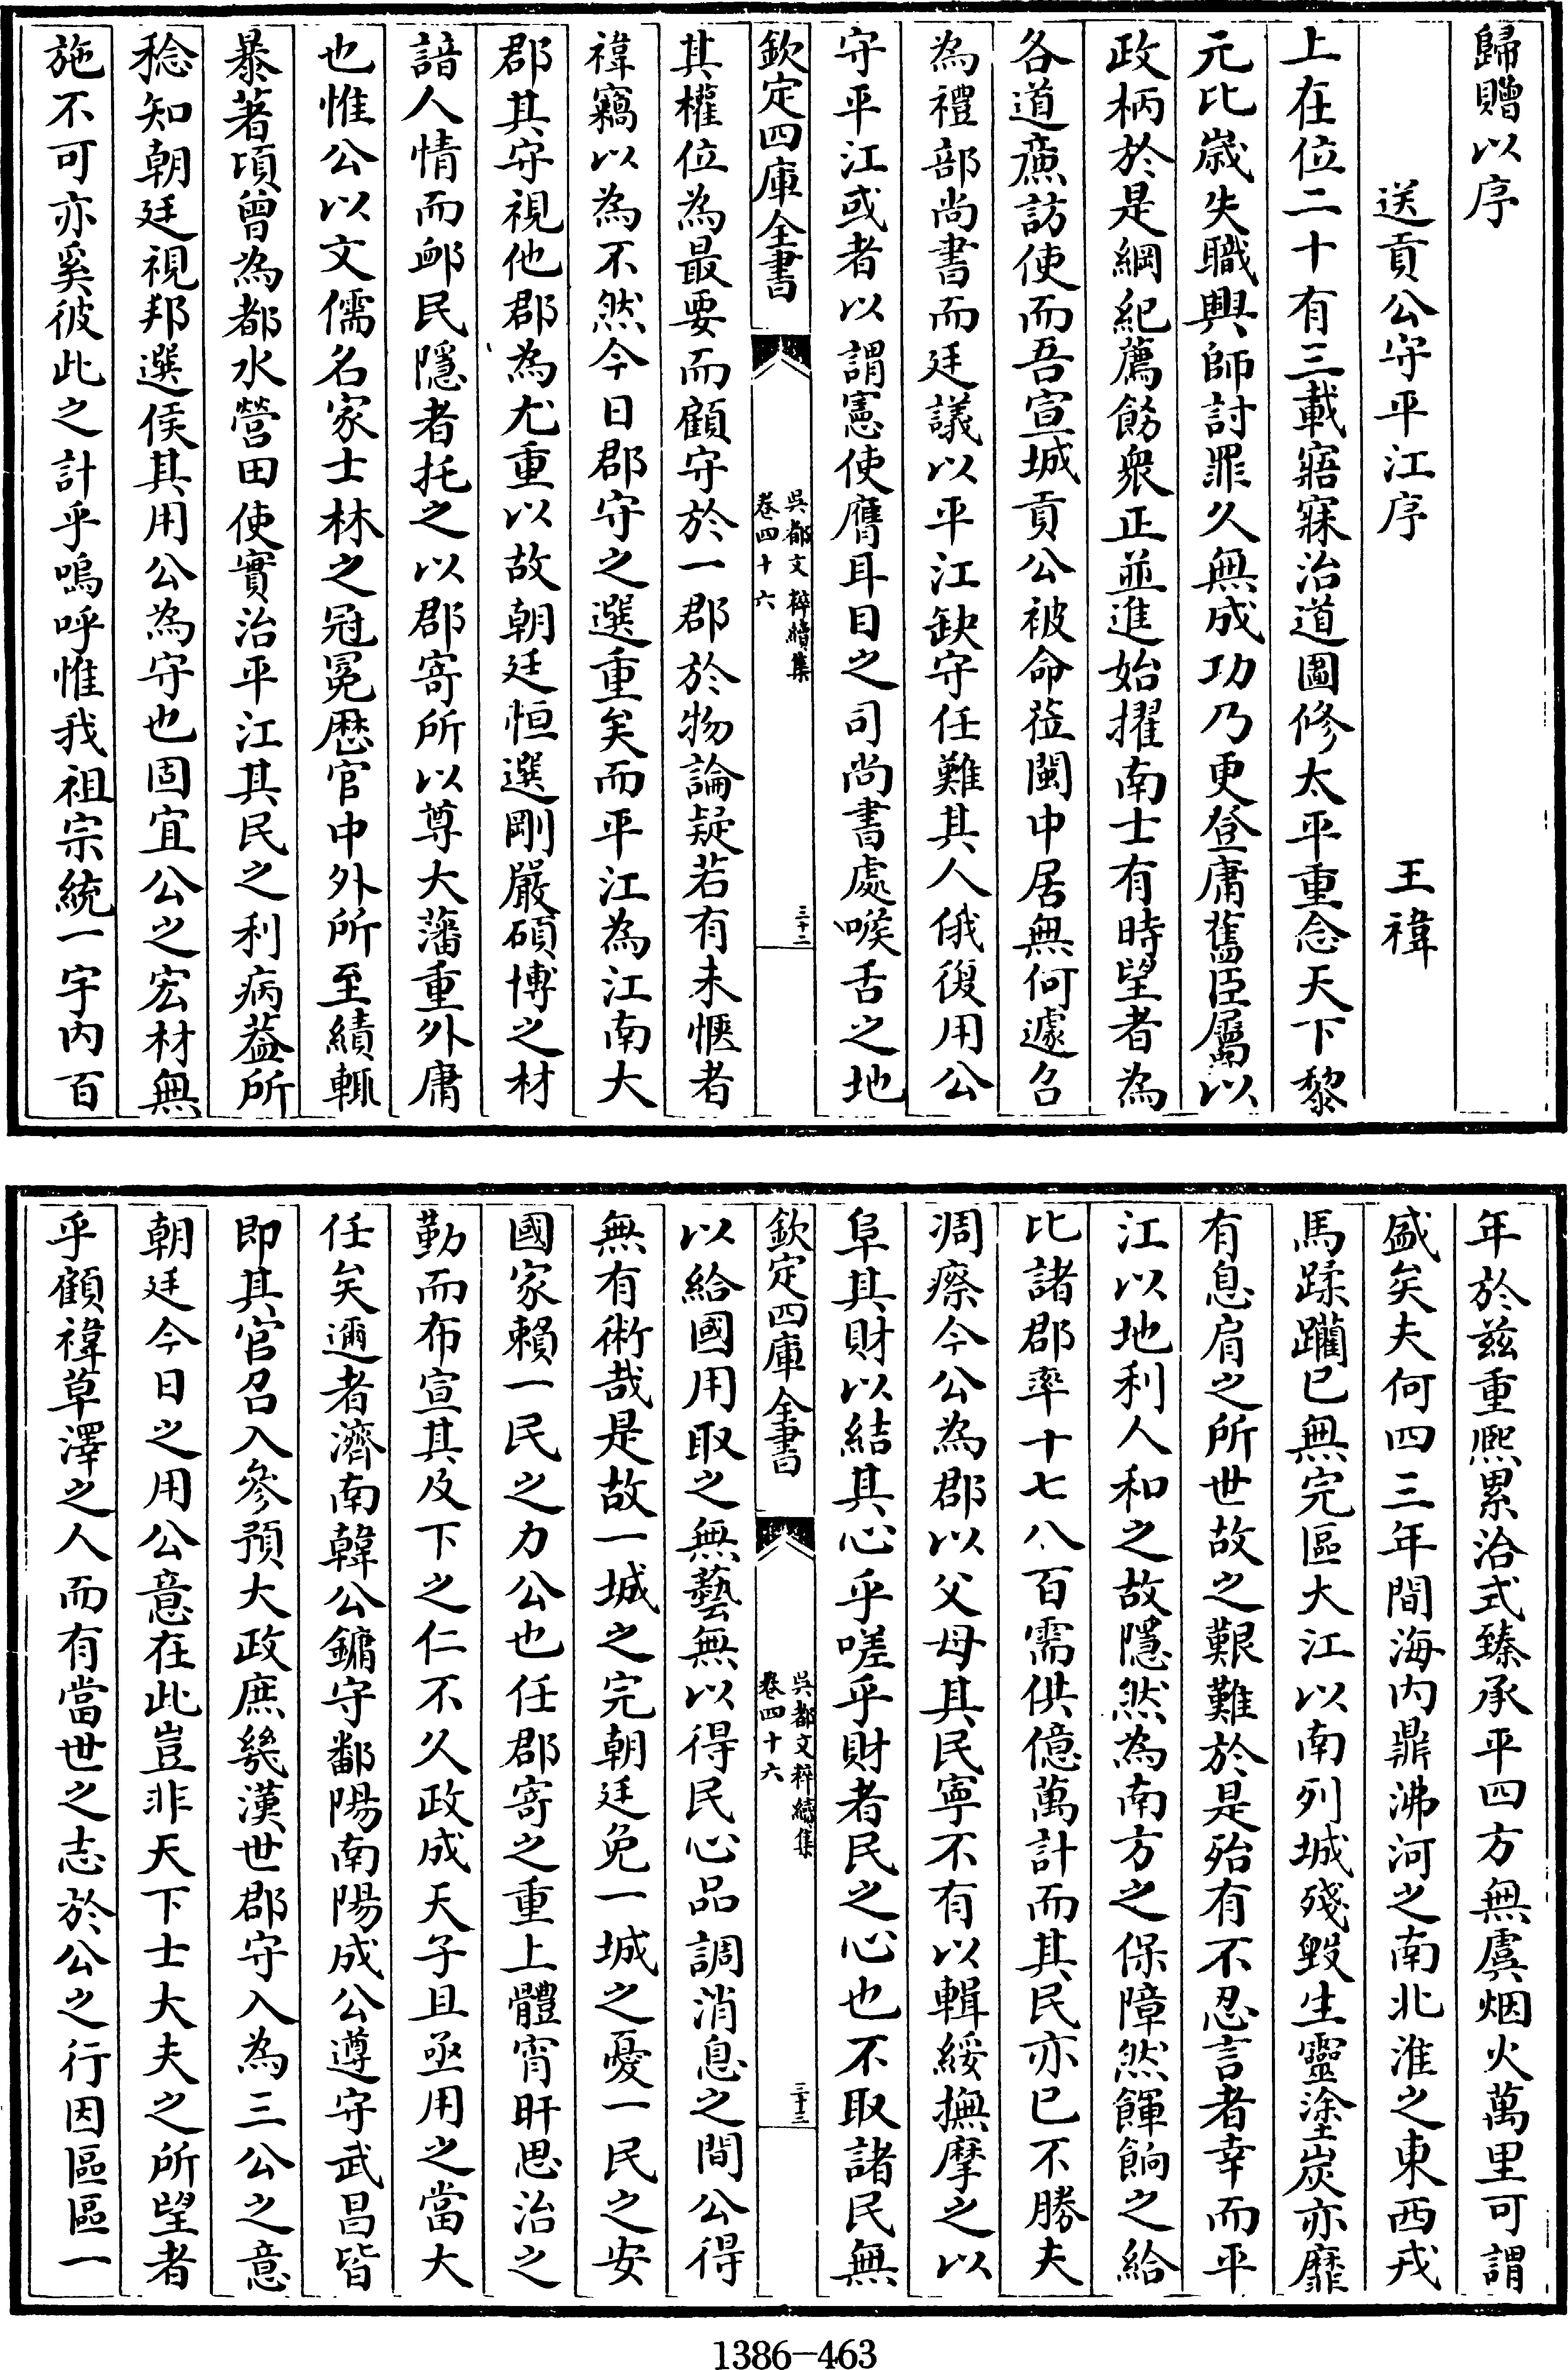 歸贈以序
送貢公守平江序　王禕
上在位二十有三載寤寐治道圖修太平重念天下黎
元比歲失職興師討罪久無成功乃更登庸舊臣屬以
政柄於是綱紀薦飭衆正並進始擢南士有時望者為
各道廉訪使而吾宣城貢公被命莅閩中居無何遽召
為禮部尚書而廷議以平江缺守任難其人俄復用公
守平江或者以謂憲使膺耳目之司尚書處喉舌之地
欽定四庫全書
吳都文粹續集
卷四十六
三十二
其權位為最要而顧守於一郡於物論疑若有未愜者
禕竊以為不然今日郡守之選重矣而平江為江南大
郡其守視他郡為尤重以故朝廷恒選剛嚴碩博之材
諳人情而衈民隱者托之以郡寄所以尊大藩重外庸
也惟公以文儒名家士林之冠冕歷官中外所至績輒
暴著頃曾為都水營田使實治平江其民之利病葢所
稔知朝廷視邦選侯其用公為守也固宜公之宏材無
施不可亦奚彼此之計乎嗚呼惟我祖宗統一宇內百
年於兹重熙累洽式臻承平四方無虞烟火萬里可謂
盛矣夫何四三年間海内鼎沸河之南北淮之東西戎
馬蹂躪已無完區大江以南列城殘毀生靈塗炭亦靡
有息肩之所世故之艱難於是殆有不忍言者幸而平
江以地利人和之故隱然為南方之保障然餫餉之給
比諸郡率十七八百需供億萬計而其民亦已不勝夫
凋瘵今公為郡以父母其民寧不有以輯綏撫摩之以
阜其財以結其心乎嗟乎財者民之心也不取諸民無
欽定四庫全書
吳都文粹續集
卷四十六
三十三
以給國用取之無藝無以得民心品調消息之間公得
無有術哉是故一城之完朝廷免一城之憂一民之安
國家賴一民之力公也任郡寄之重上體宵旰思治之
勤而布宣其及下之仁不久政成天子且亟用之當大
任矣邇者濟南韓公鏞守鄱陽南陽成公遵守武昌皆
即其官召入參預大政庶幾漢世郡守入為三公之意
朝廷今日之用公意在此豈非天下士大夫之所望者
乎顧禕草澤之人而有當世之志於公之行因區區一
1386-463